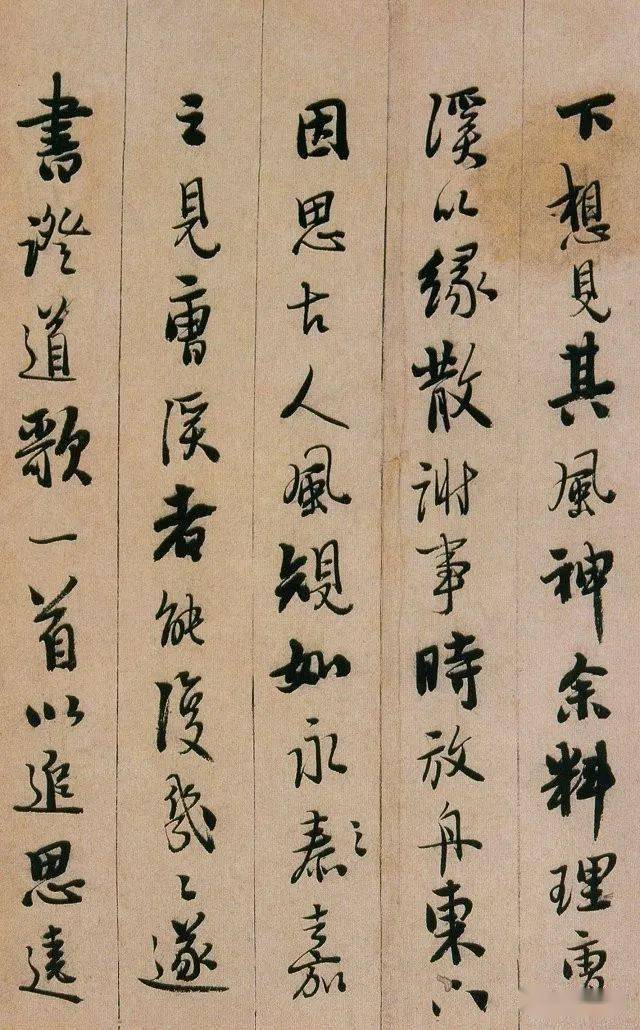 下想見其風神余料理曹
溪以緣散謝事時放舟東下
因思古人風規如永泰嘉
之見曹溪者能復幾〻遂
書證道歌一首以追思遶